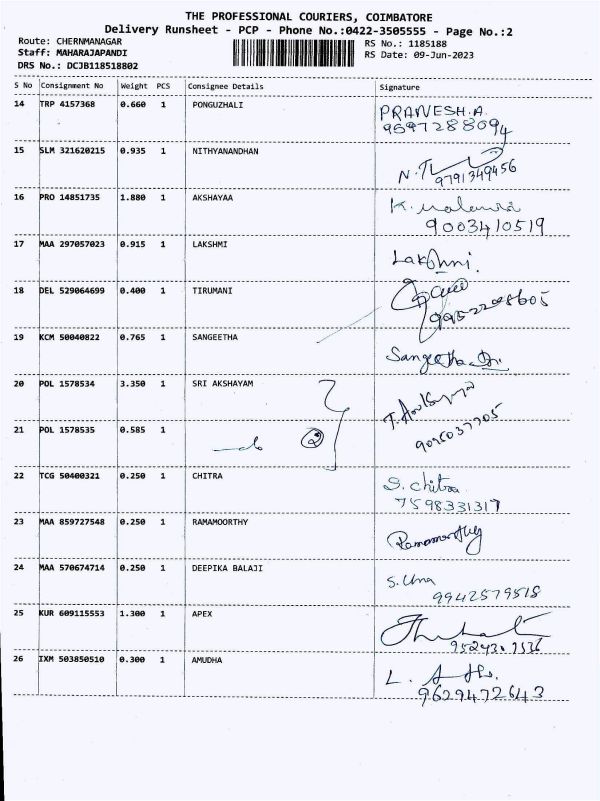 THE PROFESSIONAL COURIERS, COIMBATORE
Delivery Runsheet - PCP - Phone No.:0422-3505555 - Page No.:2
Route: CHERNMANAGAR
Staff: MAHARAJAPANDI
DRS No.: DCJB118518802
RS No.: 1185188
RS Date: 09-Jun-2023
S No Consignment No Weight PCS Consignee Details Signature
14 TRP 4157368 0.660 1 PONGUZHALI PRANESH.A.
9597288094
15 SLM 321620215 0.935 1 NITHYANANDHAN
9791349456
16 PRO 14851735 1.880 1 AKSHAYAA K.
9003410519
17 MAA 297057023 0.915 1 LAKSHMI Lakshmi.
18 DEL 529064699 0.400 1 TIRUMANI
19 KCM 50040822 0.765 1 SANGEETHA Sangeetha
20 POL 1578534 3.350 1 SRI AKSHAYAM
21 POL 1578535 0.585 1 do 2
22 TCG 50400321 0.250 1 CHITRA S. chitra
7598331317
23 MAA 859727548 0.250 1 RAMAMOORTHY Ramamoorthy
24 MAA 570674714 0.250 1 DEEPIKA BALAJI S. Uma
9942579518
25 KUR 609115553 1.300 1 APEX
26 IXM 503850510 0.300 1 AMUDHA L.
9629472643